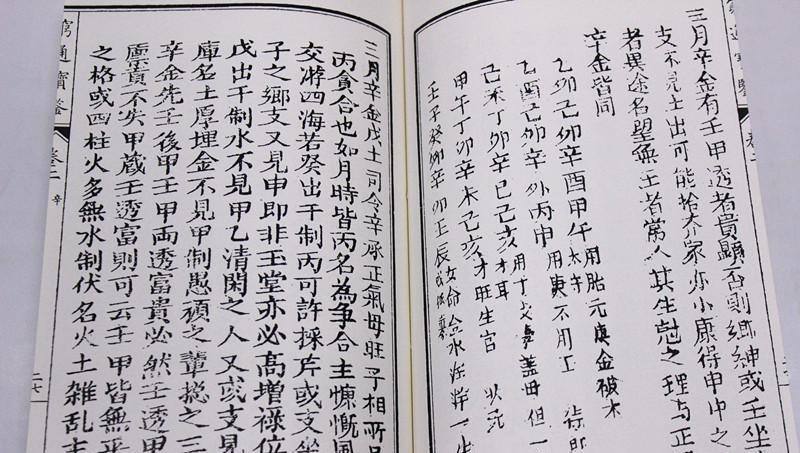 三月辛金有壬甲透者貴顯否則鄉紳或壬坐
支不見土出可能拾芥家亦小康得申中之
者異途名望無壬者常人其生剋之理與正
辛金皆同
乙卯己卯辛酉甲午 太守 用胎元庚金破木
乙酉己卯辛卯丙申 用庚不用丁
己未丁卯辛巳己亥 才耳
甲午丁卯辛未己亥 才旺生官 狀元
壬子癸卯辛卯壬辰 女命金水
三月辛金戊土司令辛承正氣母旺子相所
丙貪合也如月時皆丙名為爭合主慷慨風
交游四海若癸出干制丙可許採芹或支坐
子之鄉支又見申即非玉堂亦必高增祿位
戊出干制水不見甲乙清閑之人又或支見
庫名土厚埋金不見甲制愚頑之輩摠之三
辛金先壬後甲壬甲兩透富貴必然壬透甲
廩貴不失甲藏壬透富則可云壬甲皆無平
之格或四柱火多無水制伏名火土雜乱主
窮通寶鑑 卷二 辛